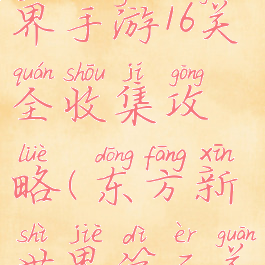 界手游16关
quán shōu jí gōng
全收集攻
lüè dōng fāng xīn
略(东方新
shì jiè dì èr guān
世界第二关